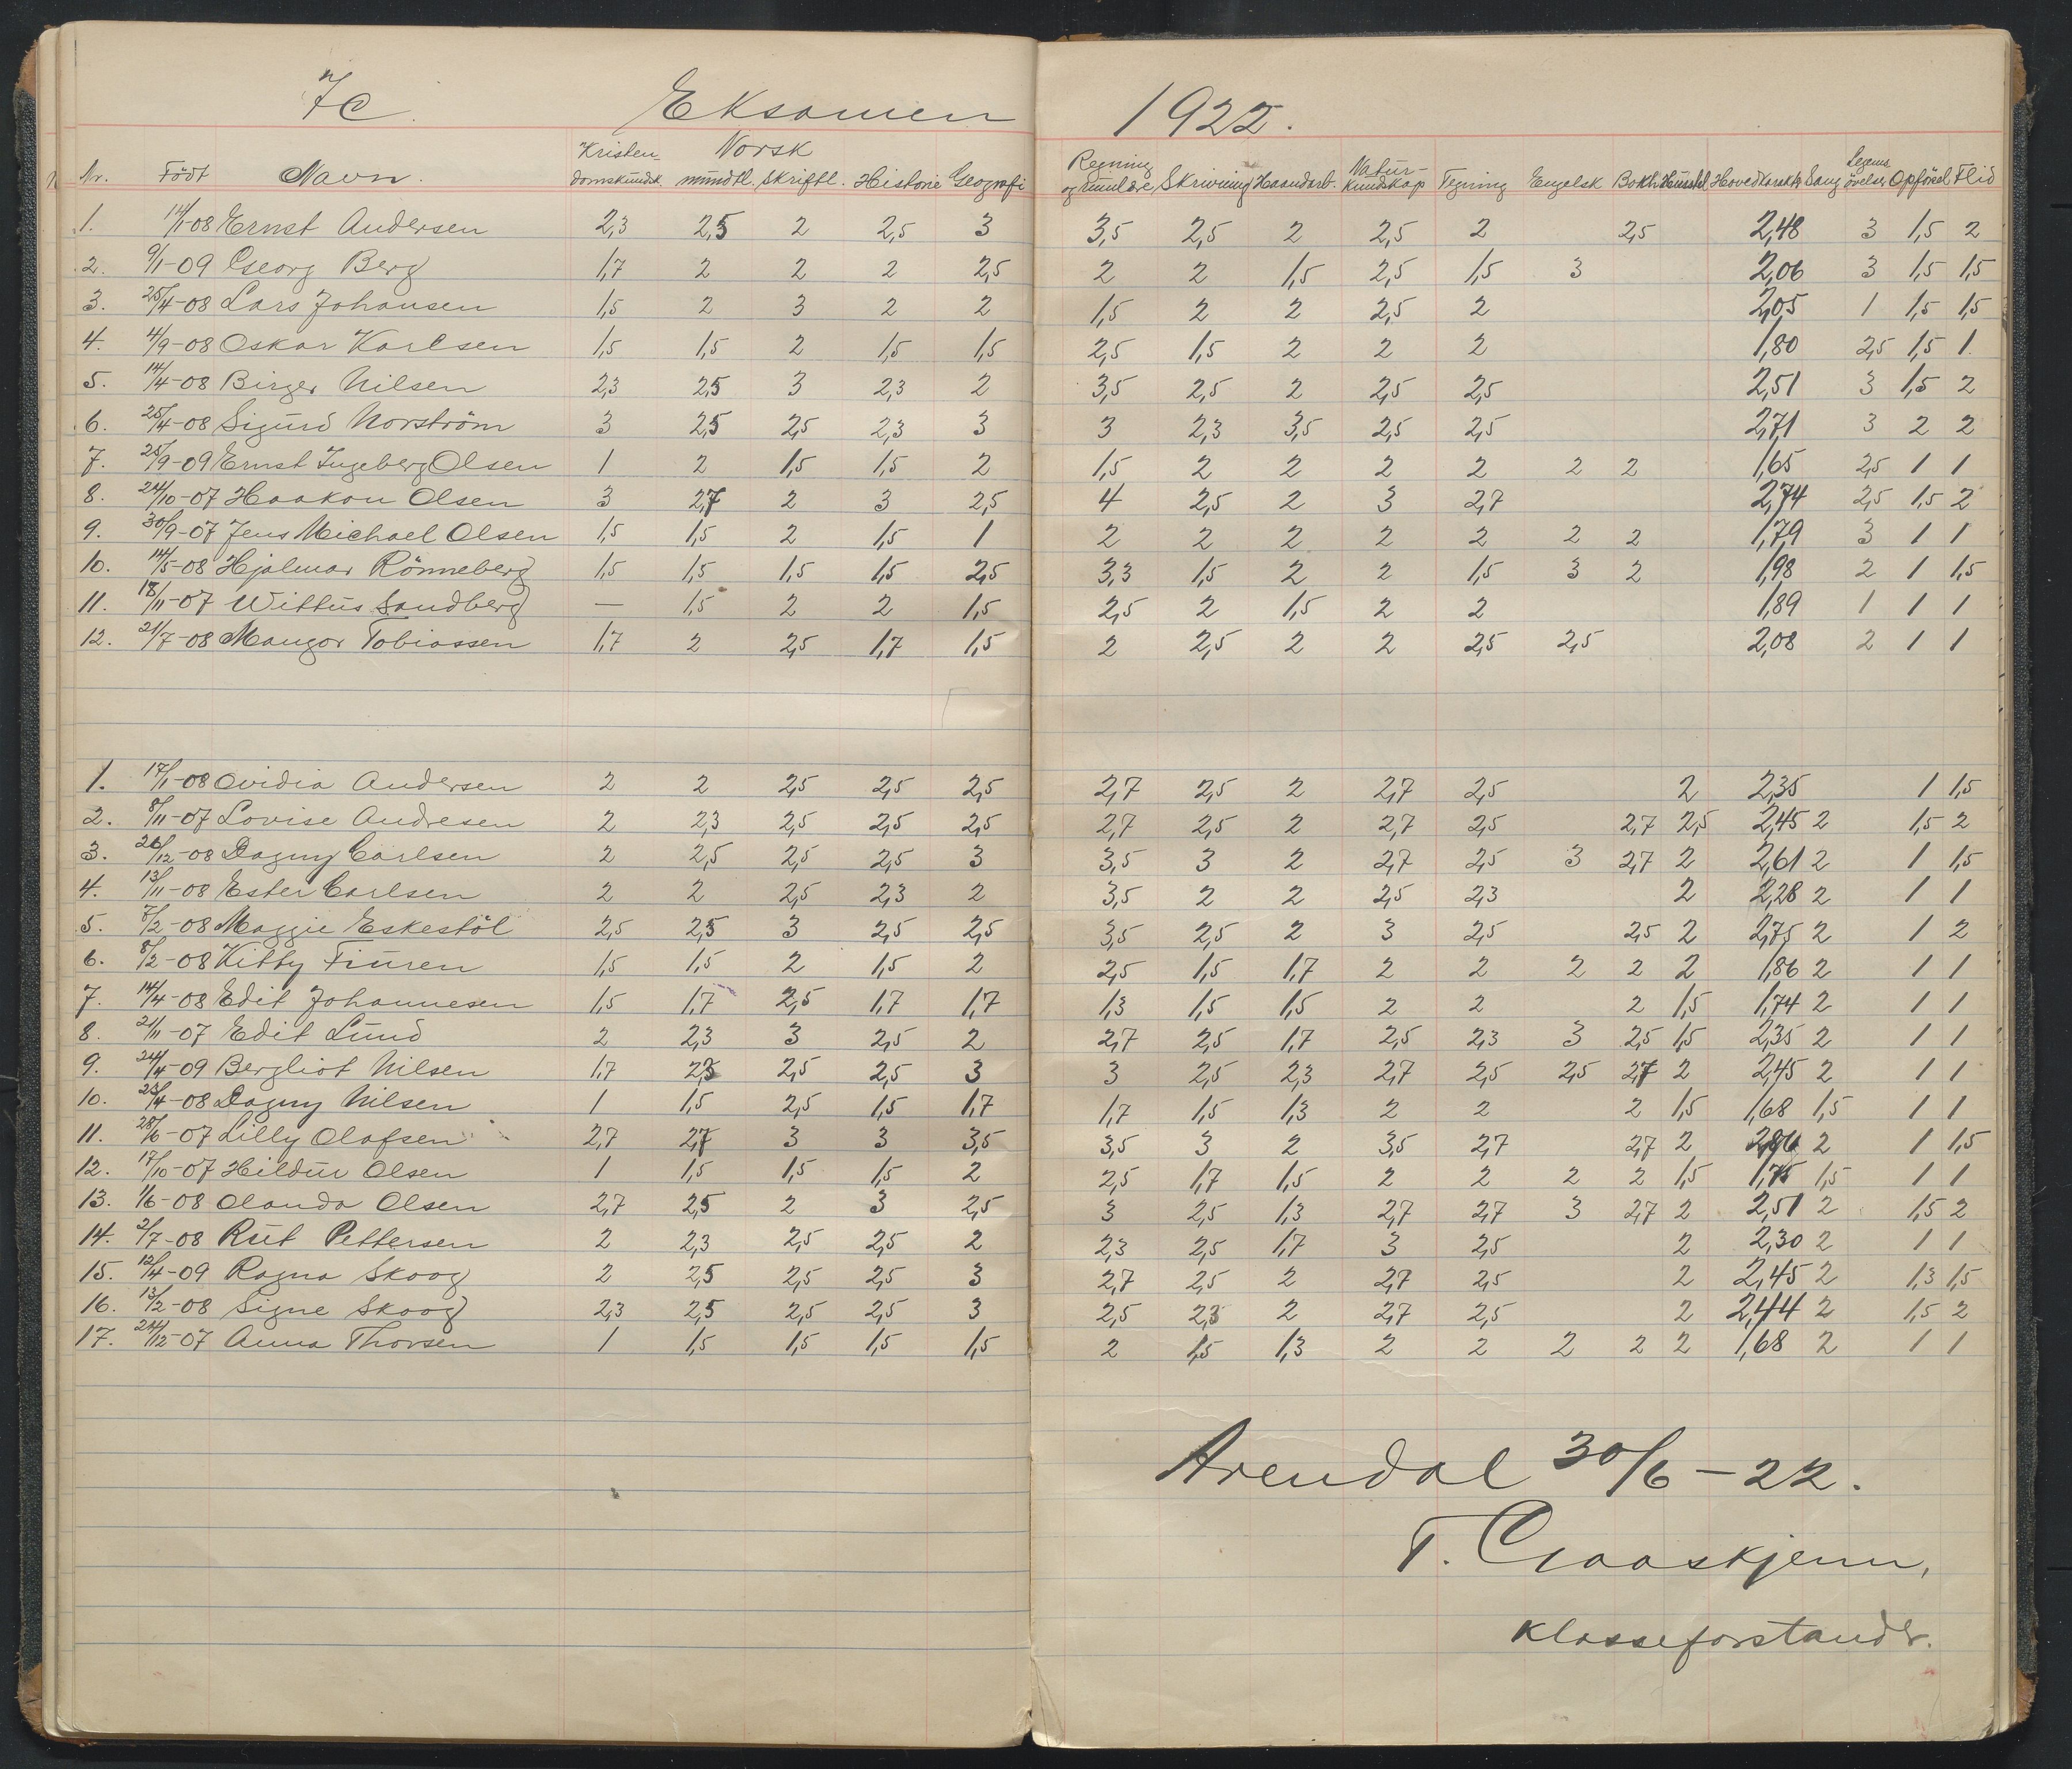 7c. Eksamen 1922.
Nr. Födt Navn. Kristen-domskundsk. Norsk mundtl. skriftl. Historie Geografi Regning Skrivning Haandarb. Natur-kundskap Tegning Engelsk Bokh. Husstel Hovedkarakt. Sang Legems øvelser Opförsel Flid
1. 14/1-08 Ernst Andersen 2,3 2,5 2 2,5 3 3,5 2,5 2 2,5 2 2,5 2,48 3 1,5 2
2. 9/1-09 Georg Berg 1,7 2 2 2 2,5 2 2 1,5 2,5 1,5 3 2,06 3 1,5 1,5
3. 25/4-08 Lars Johansen 1,5 2 3 2 2 1,5 2 2 2,5 2 2,05 1 1,5 1,5
4. 4/9-08 Oskar Karlsen 1,5 1,5 2 1,5 1,5 2,5 1,5 2 2 2 1,80 2,5 1,5 1
5. 14/4-08 Birger Nilsen 2,3 2,5 3 2,3 2 3,5 2,5 2 2,5 2,5 2,51 3 1,5 2
6. 25/4-08 Sigurd Norström 3 2,5 2,5 2,3 3 3 2,3 3,5 2,5 2,5 2,71 3 2 2
7. 25/9-09 Ernst Ingeberg Olsen 1 2 1,5 1,5 2 1,5 2 2 2 2 2 2 1,65 2,5 1 1
8. 24/10-07 Haakon Olsen 3 2,7 2 3 2,5 4 2,5 2 3 2,7 2,74 2,5 1,5 2
9. 30/9-07 Jens Michael Olsen 1,5 1,5 2 1,5 1 2 2 2 2 2 2 2 1,79 3 1 1
10. 14/5-08 Hjalmar Rönneberg 1,5 1,5 1,5 1,5 2,5 3,3 1,5 2 2 1,5 3 2 1,98 2 1 1,5
11. 18/11-07 Wittus Sandberg — 1,5 2 2 1,5 2,5 2 1,5 2 2 1,89 1 1 1
12. 21/7-08 Mangor Tobiassen 1,7 2 2,5 1,7 1,5 2 2,5 2 2 2,5 2,5 2,08 2 1 1
1. 17/1-08 Ovidia Andersen 2 2 2,5 2,5 2,5 2,7 2,5 2 2,7 2,5 2 2,35 1 1,5
2. 8/11-07 Lovise Andresen 2 2,3 2,5 2,5 2,5 2,7 2,5 2 2,7 2,5 2,7 2,5 2,45 2 1,5 2
3. 26/12-08 Dagny Carlsen 2 2,5 2,5 2,5 3 3,5 3 2 2,7 2,5 3 2,7 2 2,61 2 1 1,5
4. 13/11-08 Ester Carlsen 2 2 2,5 2,3 2 3,5 2 2 2,5 2,3 2 2,28 2 1 1
5. 7/2-08 Maggie Eskestöl 2,5 2,5 3 2,5 2,5 3,5 2,5 2 3 2,5 2,5 2 2,75 2 1 2
6. 8/2-08 Kitty Fiuren 1,5 1,5 2 1,5 2 2,5 1,5 1,7 2 2 2 2 2 1,86 2 1 1
7. 14/4-08 Edit Johannesen 1,5 1,7 2,5 1,7 1,7 1,3 1,5 1,5 2 2 2 1,5 1,74 2 1 1
8. 21/11-07 Edit Lund 2 2,3 3 2,5 2 2,7 2,5 1,7 2,5 2,3 3 2,5 1,5 2,35 2 1 1
9. 24/4-09 Bergliot Nilsen 1,7 2,3 2,5 2,5 3 3 2,5 2,3 2,7 2,5 2,5 2,7 2 2,45 2 1 1
10. 23/4-08 Dagny Nilsen 1 1,5 2,5 1,5 1,7 1,7 1,5 1,3 2 2 2 1,5 1,68 1,5 1 1
11. 28/6-07 Lilly Olafsen 2,7 2,7 3 3 3,5 3,5 3 2 3,5 2,7 2,7 2 2 1 1,5
12. 17/10-07 Hildur Olsen 1 1,5 1,5 1,5 2 2,5 1,7 1,5 2 2 2 2 1,5 1,75 1,5 1 1
13. 1/6-08 Olanda Olsen 2,7 2,5 2 3 2,5 3 2,5 1,3 2,7 2,7 3 2,7 2 2,51 2 1,5 2
14. 2/7-08 Rut Pettersen 2 2,3 2,5 2,5 2 2,3 2,5 1,7 3 2,5 2 2,30 2 1 1
15. 12/4-09 Ragna Skoog 2 2,5 2,5 2,5 3 2,7 2,5 2 2,7 2,5 2 2,45 2 1,3 1,5
16. 13/2-08 Signe Skoog 2,3 2,5 2,5 2,5 3 2,5 2,3 2 2,7 2,5 2 2,44 2 1,5 2
17. 24/12-07 Anna Thorsen 1 1,5 1,5 1,5 1,5 2 1,5 1,3 2 2 2 2 2 1,68 2 1 1
Arendal 30/6-22.
T. Graaskjenn,
Klasseforstander.